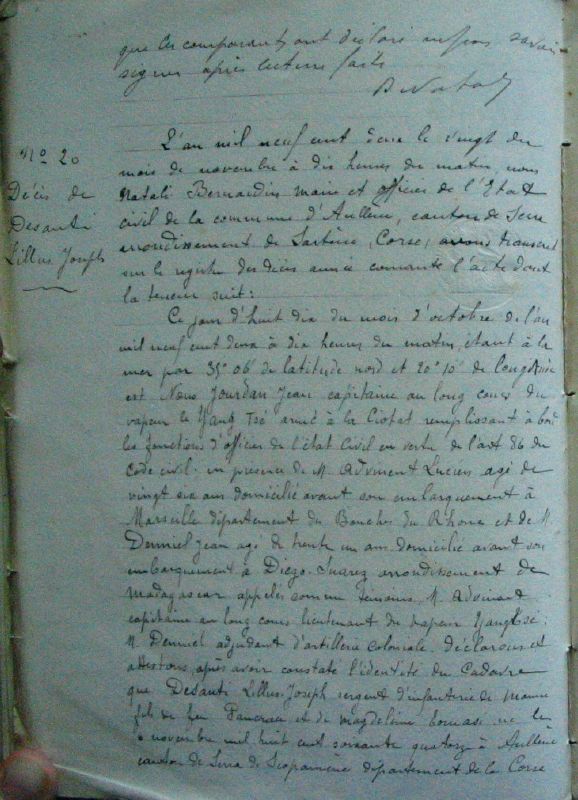 que les comparants ont déclaré ne pas savoir
signer après lecture faite
B Natali
N° 20
Décès de
Desanti
Lillus Joseph
L'an mil neuf cent douze le vingt du
mois de novembre à dix heures du matin, nous
Natali Bernardin maire et officier de l'Etat
civil de la commune d'Aullene, canton de Serra
arrondissement de Sartène, Corse, avons transcrit
sur le registre des décès année courante l'acte dont
la teneur suit:
Ce jour d'huit dix du mois d'octobre de l'an
mil neuf cent douze à dix heures du matin, étant à la
mer par 35° 06' de latitude nord et 20° 10' de longitude
est Nous Jourdan Jean capitaine au long cours du
vapeur le Yang Tsé armé à la Ciotat remplissant à bord
les fonctions d'officier de l'état civil en vertu de l'art 86 du
code civil en présence de M. Advinent Lucien agé de
vingt six ans domicilié avant son embarquement à
Marseille département des Bouches du Rhone et de M.
Demiel Jean agé de trente un ans domicilié avant son
embarquement à Diego-Suarez arrondissement de
Madagascar appelés comme témoins, M. Advinent
capitaine au long cours lieutenant du vapeur Yangtsé;
M. Demiel adjudant d'artillerie coloniale. Déclarons et
attestons, après avoir constaté l'identité du Cadavre
que Desanti Lillus-Joseph sergent d'infanterie de marine
fils de feu Pancrace et de Magdeleine né le
novembre mil huit cent soixante quatorze à Aullene
canton de Serra de Scopamène département de la Corse